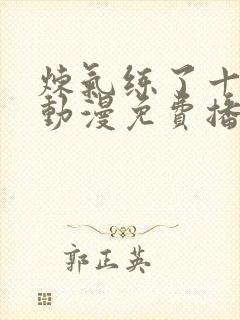 煉氣练了十
動漫免費播
郭正英